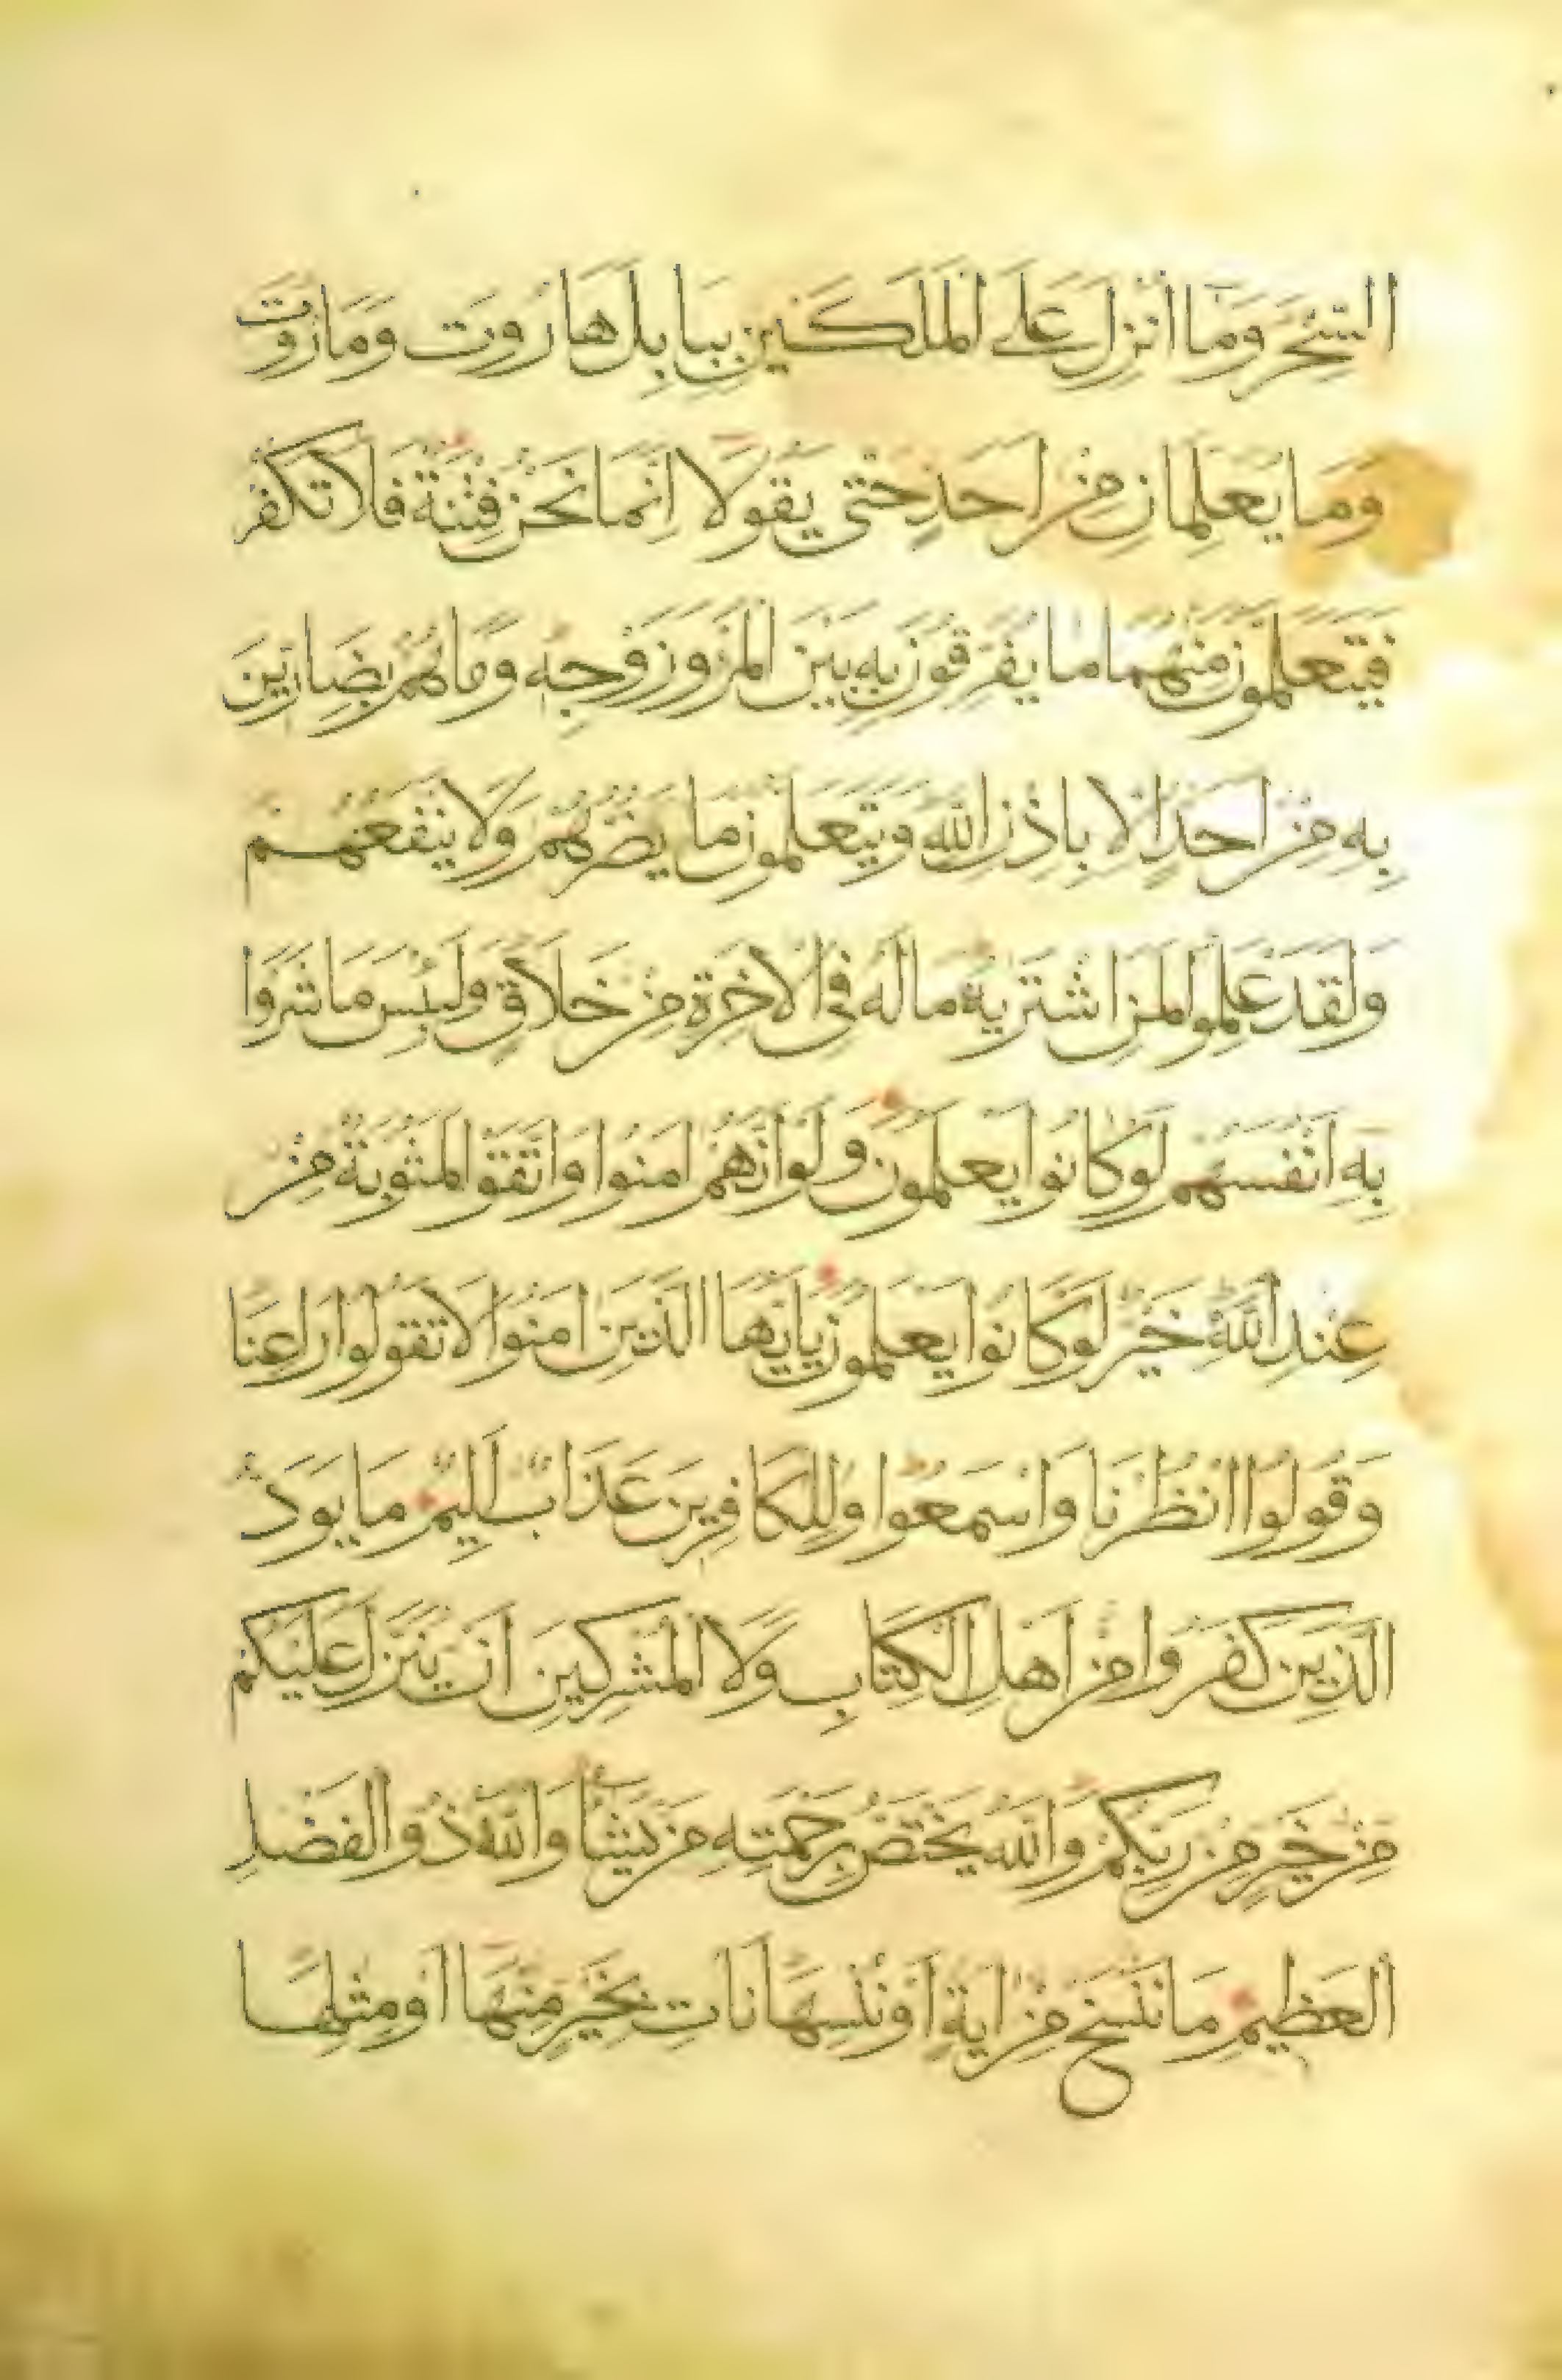 السِّحْرَ وَمَا اُنْزِلَ عَلَى الْمَلَكَيْنِ بِبَابِلَ هَارُوتَ وَمَارُوتَ
وَمَا يُعَلِّمَانِ مِنْ اَحَدٍ حَتّٰى يَقُولَا اِنَّمَا نَحْنُ فِتْنَةٌ فَلَا تَكْفُرْ
فَيَتَعَلَّمُونَ مِنْهُمَا مَا يُفَرِّقُونَ بِهِ بَيْنَ الْمَرْءِ وَزَوْجِهِ وَمَا هُمْ بِضَارِّينَ
بِهِ مِنْ اَحَدٍ اِلَّا بِاِذْنِ اللّٰهِ وَيَتَعَلَّمُونَ مَا يَضُرُّهُمْ وَلَا يَنْفَعُهُمْ
وَلَقَدْ عَلِمُوا لَمَنِ اشْتَرٰيهُ مَالَهُ فِي الْاٰخِرَةِ مِنْ خَلَاقٍ وَلَبِئْسَ مَا شَرَوْا
بِهِ اَنْفُسَهُمْ لَوْ كَانُوا يَعْلَمُونَ وَلَوْ اَنَّهُمْ اٰمَنُوا وَاتَّقَوْا لَمَثُوبَةٌ مِنْ
عِنْدِ اللّٰهِ خَيْرٌ لَوْ كَانُوا يَعْلَمُونَ يَا اَيُّهَا الَّذِينَ اٰمَنُوا لَا تَقُولُوا رَاعِنَا
وَقُولُوا انْظُرْنَا وَاسْمَعُوا وَلِلْكَافِرِينَ عَذَابٌ اَلِيمٌ مَا يَوَدُّ
الَّذِينَ كَفَرُوا مِنْ اَهْلِ الْكِتَابِ وَلَا الْمُشْرِكِينَ اَنْ يُنَزَّلَ عَلَيْكُمْ
مِنْ خَيْرٍ مِنْ رَبِّكُمْ وَاللّٰهُ يَخْتَصُّ بِرَحْمَتِهِ مَنْ يَشَاءُ وَاللّٰهُ ذُو الْفَضْلِ
الْعَظِيمِ مَا نَنْسَخْ مِنْ اٰيَةٍ اَوْ نُنْسِهَا نَاْتِ بِخَيْرٍ مِنْهَا اَوْ مِثْلِهَا